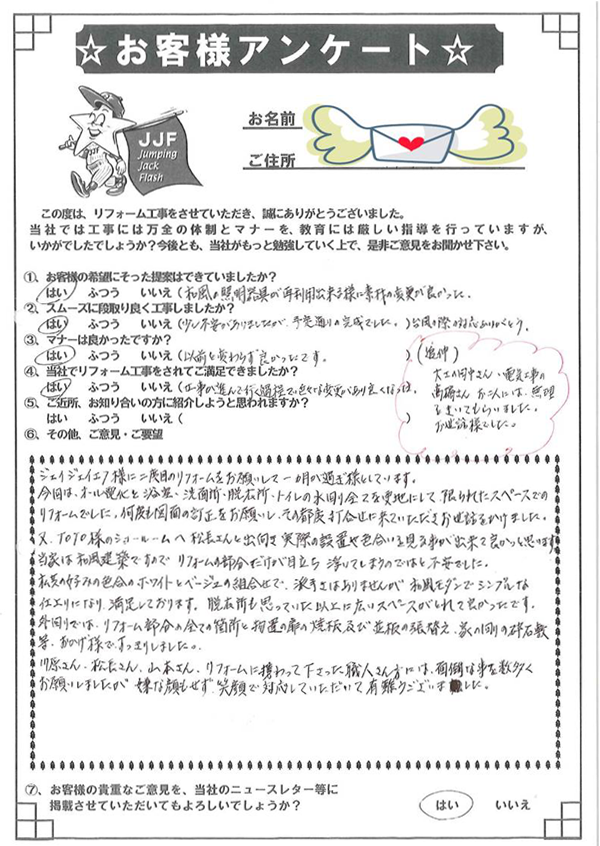 ☆お客様アンケート☆
JJF
Jumping
Jack
Flash
お名前
ご住所
この度は、リフォーム工事をさせていただき、誠にありがとうございました。
当社では工事には万全の体制とマナーを、教育には厳しい指導を行っていますが、
いかがでしたでしょうか？今後とも、当社がもっと勉強していく上で、是非ご意見をお聞かせ下さい。
①、お客様の希望にそった提案はできていましたか？
はい ふつう いいえ（和風の照明器具が再利用出来る様に素材の変更が良かった。
②、スムーズに段取り良く工事しましたか？
はい ふつう いいえ（少し不安がありましたが、予定通りの完成でした。）台風の際の対応ありがとう。
③、マナーは良かったですか？
はい ふつう いいえ（以前と変わらず良かったです。）
④、当社でリフォーム工事をされてご満足できましたか？
はい ふつう いいえ（工事が進んで行く過程で色々な変更があり良くなった。）
⑤、ご近所、お知り合いの方に紹介しようと思われますか？
はい ふつう いいえ（ ）
（追伸）
大工の田中さん、電気工事の
高橋さん お二人には、無理
をきいてもらいました。
お世話様でした。
⑥、その他、ご意見・ご要望
ジェイジェイエフ様に二度目のリフォームをお願いして一ヶ月が過ぎ様としています。
今回は、オール電化と浴室、洗面所・脱衣所・トイレの水回り全てを更地にして、限られたスペースでの
リフォームでした。何度も図面の訂正をお願いし、その都度打合せに来ていただきお世話をかけました。
又、TOTO様のショールームへ松長さんと出向き実際の設置や色合いを見る事が出来て良かったと思います
当家は和風建築ですのでリフォームの部分だけが目立ち 浮いてしまうのではと不安でした。
松長の好みの色合のホワイトとベージュの組合せで、派手さはありませんが和風モダンでシンプルな
仕上りになり、満足しております。脱衣所も思っていた以上に広いスペースがとれて良かったです。
外回りでは、リフォーム部分の全ての箇所と物置の扉の焼板及び 並板の張替え、家の回りの砕石敷
等、おかげ様ですっきりしました。
川原さん、松長さん、山本さん、リフォームに携わって下さった職人さん方には、面倒な事を数多く
お願いしましたが 嫌な顔もせず、笑顔で対応していただいて有難うございました。
⑦、お客様の貴重なご意見を、当社のニュースレター等に
掲載させていただいてもよろしいでしょうか？ はい いいえ